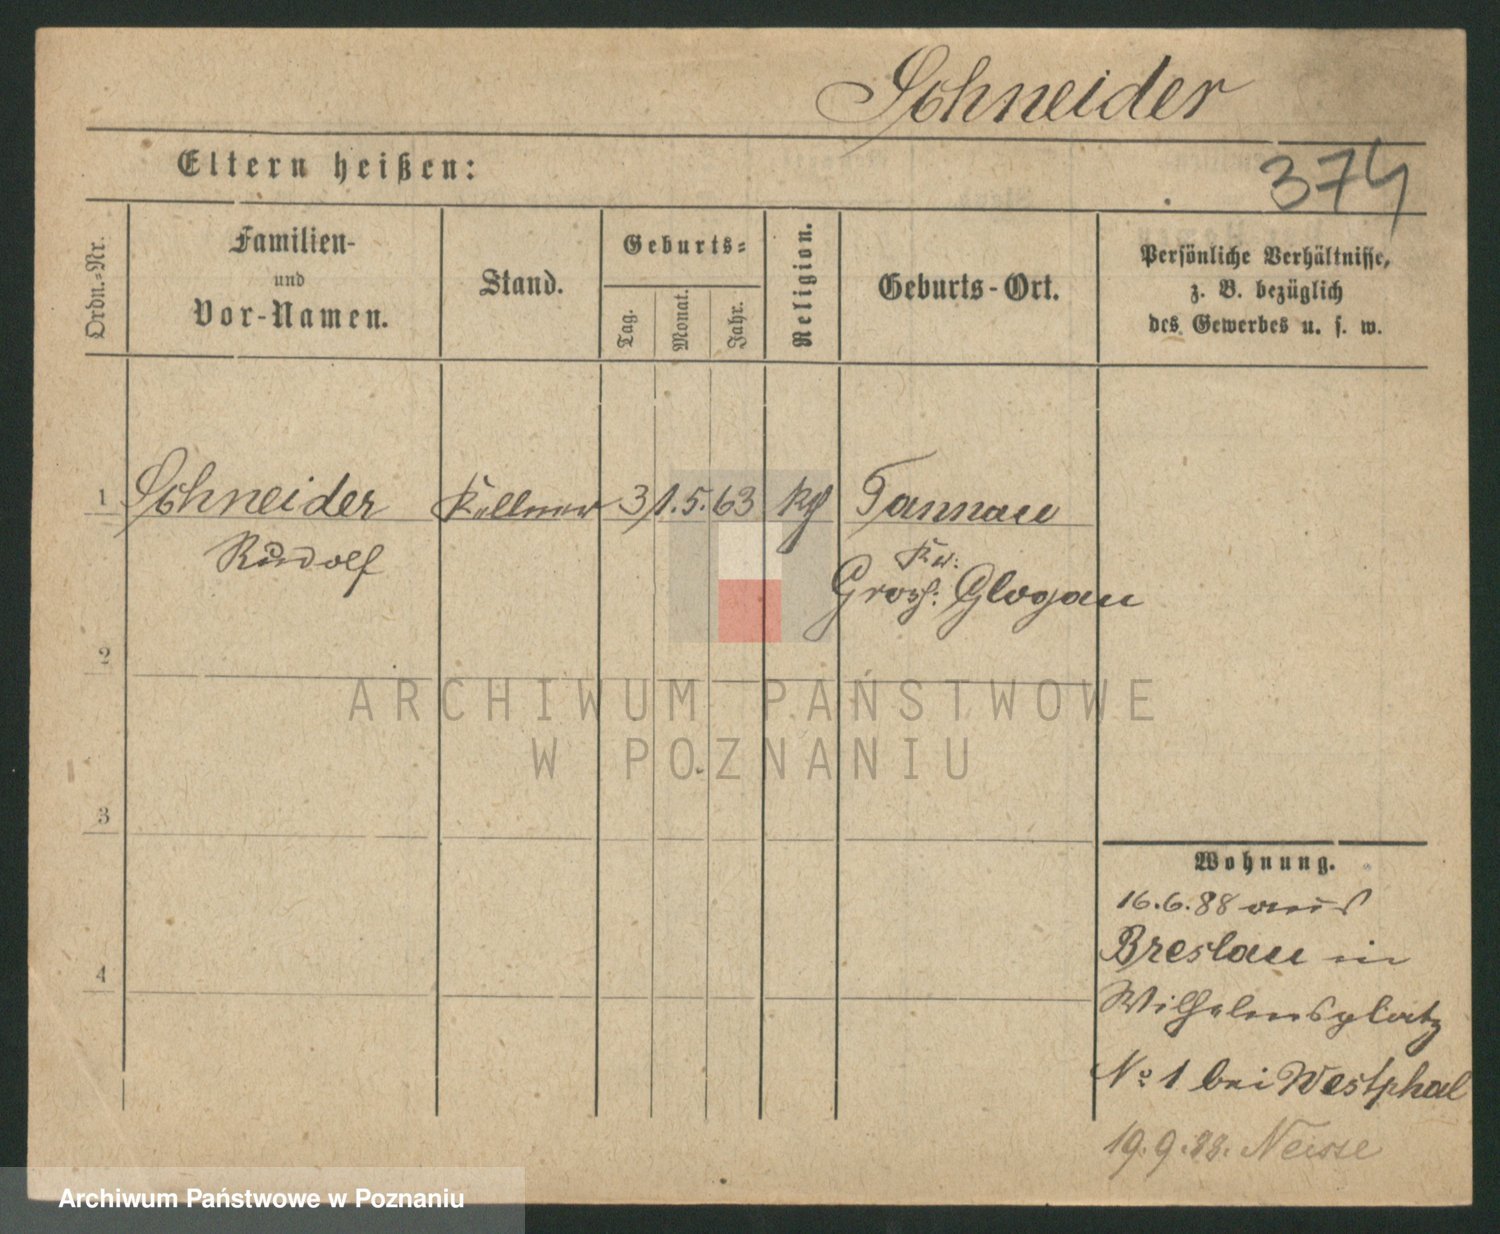 Schneider
374
Eltern heißen:
Ordn.-Nr.
Familien-
und
Vor-Namen.
Stand.
Geburts-
Tag.
Monat.
Jahr.
Religion.
Geburts-Ort.
Persönliche Verhältnisse,
z. B. bezüglich
des Gewerbes u. s. w.
1 Schneider Kellner 31.5.63 kth Tannau
Rudolf
Kr.
Groß: Glogau
2
ARCHIWUM PAŃSTWOWE
W POZNANIU
3
4
Wohnung.
16.6.88 aus
Breslau in
Wilhelmsplatz
No 1 bei Westphal
19.9.88. Neisse
Archiwum Państwowe w Poznaniu